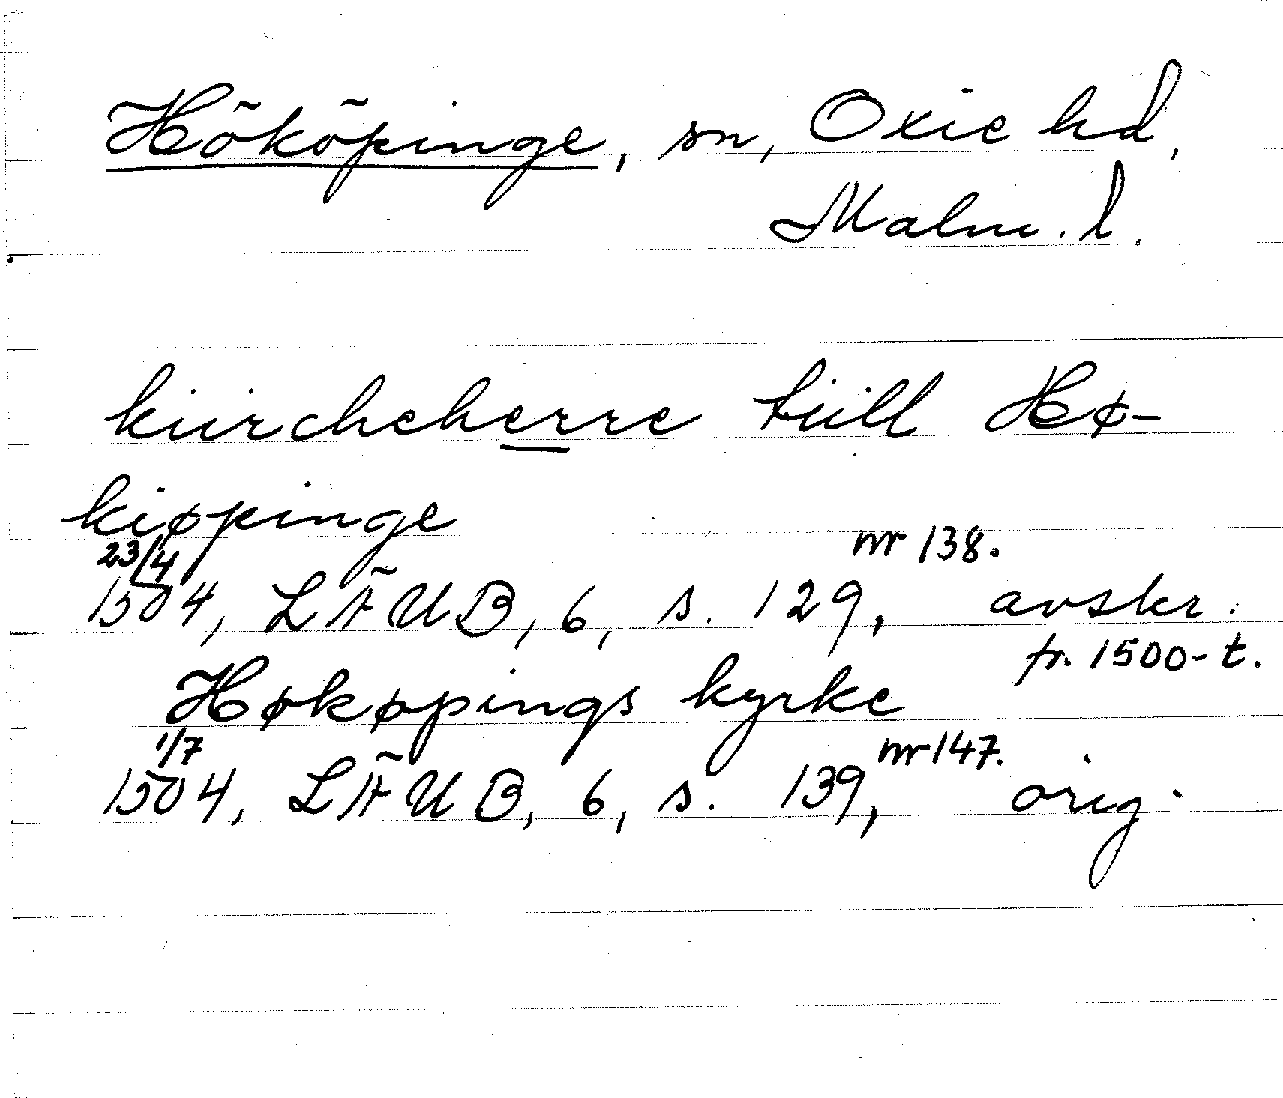 Hököpinge, sn, Oxie hd,
Malm. l.
kiircheherre tiill Hø-
kiøpinge
23/4 nr 138.
1504, LÄUB, 6, s. 129, avskr.
fr. 1500-t.
Høkøpings kyrke
1/7 nr 147.
1504, LÄUB, 6, s. 139, orig.